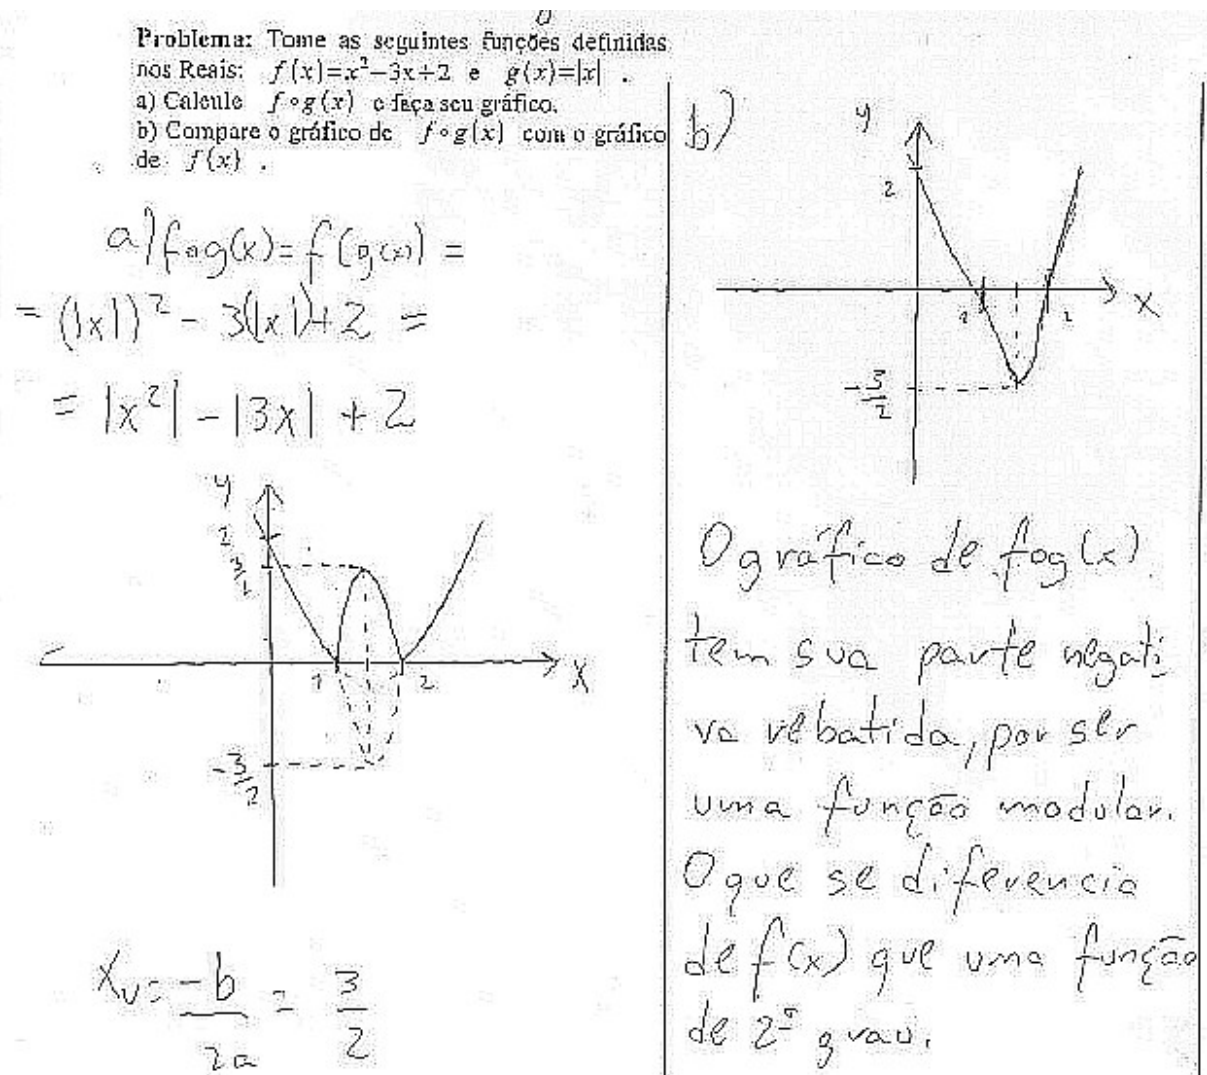 Problema: Tome as seguintes funções definidas
nos Reais: f(x)=x²−3x+2 e g(x)=|x| .
a) Calcule f∘g(x) e faça seu gráfico.
b) Compare o gráfico de f∘g(x) com o gráfico
de f(x) .
a) fog(x) = f(g(x)) =
= (|x|)² - 3(|x|)+2 =
= |x²| - |3x| + 2
y
2
3/2
1 2 X
-3/2
Xv = -b/2a = 3/2
b)
y
2
1 2 X
-3/2
O gráfico de fog(x)
tem sua parte negati
va rebatida, por ser
uma função modular.
O que se diferencia
de f(x) que uma função
de 2º grau.